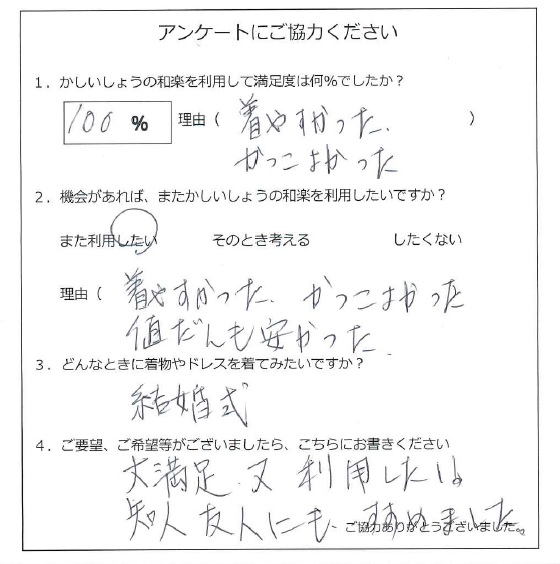 アンケートにご協力ください
1．かしいしょうの和楽を利用して満足度は何%でしたか？
100 % 理由（ 着やすかった． ）
かっこよかった
2．機会があれば、またかしいしょうの和楽を利用したいですか？
また利用したい そのとき考える したくない
理由（ 着やすかった．かっこよかった
値だんも安かった．
3．どんなときに着物やドレスを着てみたいですか？
結婚式
4．ご要望、ご希望等がございましたら、こちらにお書きください
大満足．又 利用したい。
知人 友人にも すすめました。
ご協力ありがとうございました。